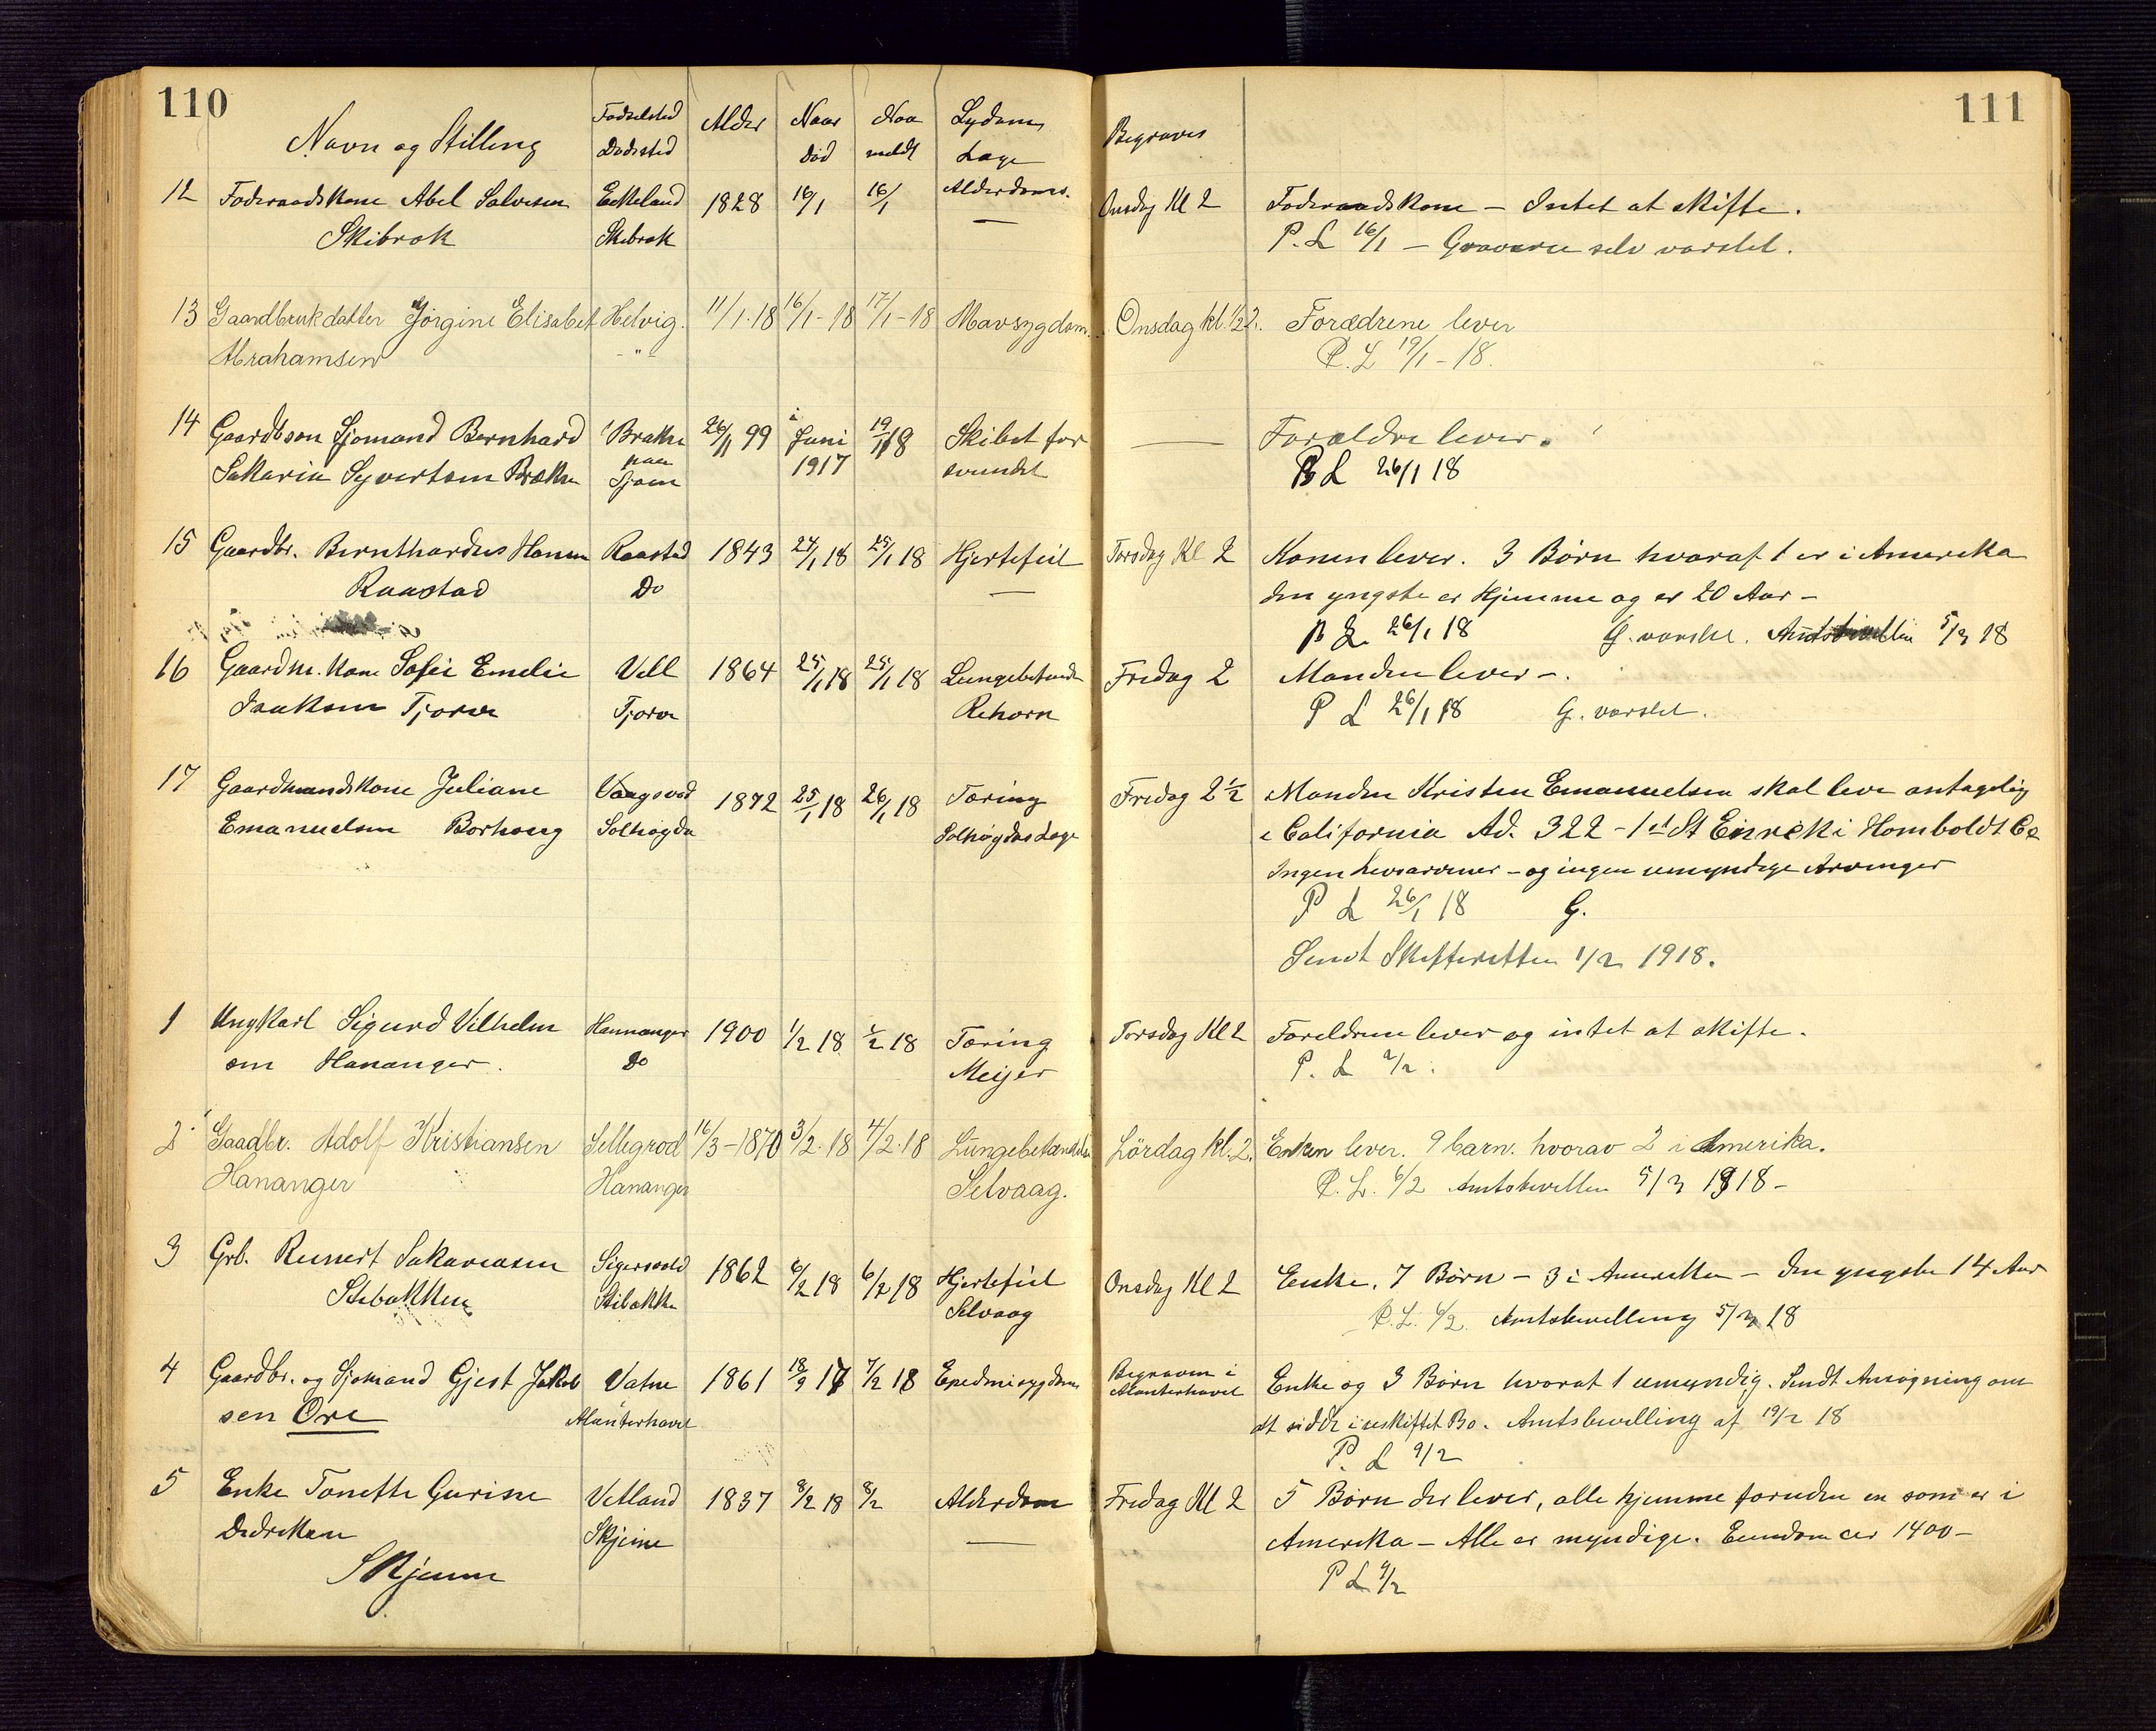 110
111
Navn og Stilling Fødselsted Dødssted Alder Naar død Naa meldt Sygdom Læge Begraves
12 Føderaadskone Abel Salvesen Eikeland 1828 16/1 16/1 Alderdoms. Onsdag Kl 2 Føderaadskone – Intet at skifte.
Skibrok Skibrok — P. L 16/1 – Graveren selv varslet.
13 Gaardbrukdatter Jørgine Elisabet Helvig. 11/1.18 16/1-18 17/1-18 Mavsygdom. Onsdag kl. 1/2 2. Forædrene lever
Abrahamsen - " - P. L 19/1-18.
14 Gaardbson Sjømand Bernhard Brække 26/11 99 i Juni 19/1 18 Skibet for — Forældre lever.
Sakaria Syvertsen Brække paa Sjøen 1917 svundet P L 26/1 18
15 Gaardbr. Bernthardus Hansen Raastad 1843 24/1 18 25/1 18 Hjertefeil Torsdag Kl 2 Konen lever. 3 Børn hvoraf 1 er i Amerika
Raastad Do — den yngste er hjemme og er 20 Aar –
P L. 26/1 18 G. varslet. 5/3 18
16 Gaardm. kone Sofie Emelie Vell 1864 25/1 18 25/1 18 Lungebetænde Fredag 2 Manden lever –.
Isaksen Tjørve Tjørve Rehorn P L 26/1 18 G. varslet.
17 Gaardmandskone Juliane Vaagsvod 1872 25/1 18 26/1 18 Tæring Fredag 2 1/2 Manden Kristen Emanuelsen skal leve antagelig
Emanuelsen Borhaug Solhøgda Solhøgdas Læge i California Ad. 322 – 1st St Eureki Homboldt Co
Ingen Livsarvinger – og ingen umyndige Arvinger
P L 26/1 18 G.
Sendt Skifteretten 1/2 1918.
1 Ungkarl Sigurd Vilhelm Hannanger 1900 1/2 18 2/2 18 Tæring Torsdag Kl 2 Foreldrene lever og intet at skifte.
sen Hananger. Do Meijer P. L 2/2.
2 Gaadbr. Adolf Kristiansen Sellegrod 16/3-1870 3/2.18 4/2.18 Lungebetændelse Lördag kl. 2. Enken lever. 9 barn. hvorav 2 i Amerika.
Hananger Hananger Selvaag. P. L. 6/2 Amtsbevillen 5/3 1918 –
3 Grb. Reinert Sakariasen Sigersvold 1862 6/2 18 6/2 18 Hjertefeil Onsdag Kl 2 Enke. 7 Børn – 3 i Amerika – den yngste 14 Aar
Stibakken Stibakke Selvaag P. L. 6/2. Amtsbevilling 5/3 18
4 Gaardbr. og Sjømand Gjest Jakob Vatne 1861 18/9 17 7/2 18 Epedmisygdom Begraven i Atlanterhavet Enke og 3 Børn hvorat 1 umyndig. Sendt Ansøgning om
sen Ore Atlanterhavet at sidde i uskiftet Bo. Amtsbevilling af 19/2 18
P. L 9/2
5 Enke Tonette Gurine Vetland 1837 8/2 18 8/2 Alderdom Fredag Kl 2 5 Børn der lever, alle hjemme foruden en som er i
Dedriksen Skjeime — Amerika – Alle er myndige. Eiendom ca 1400 –
Skjeime P L 9/2